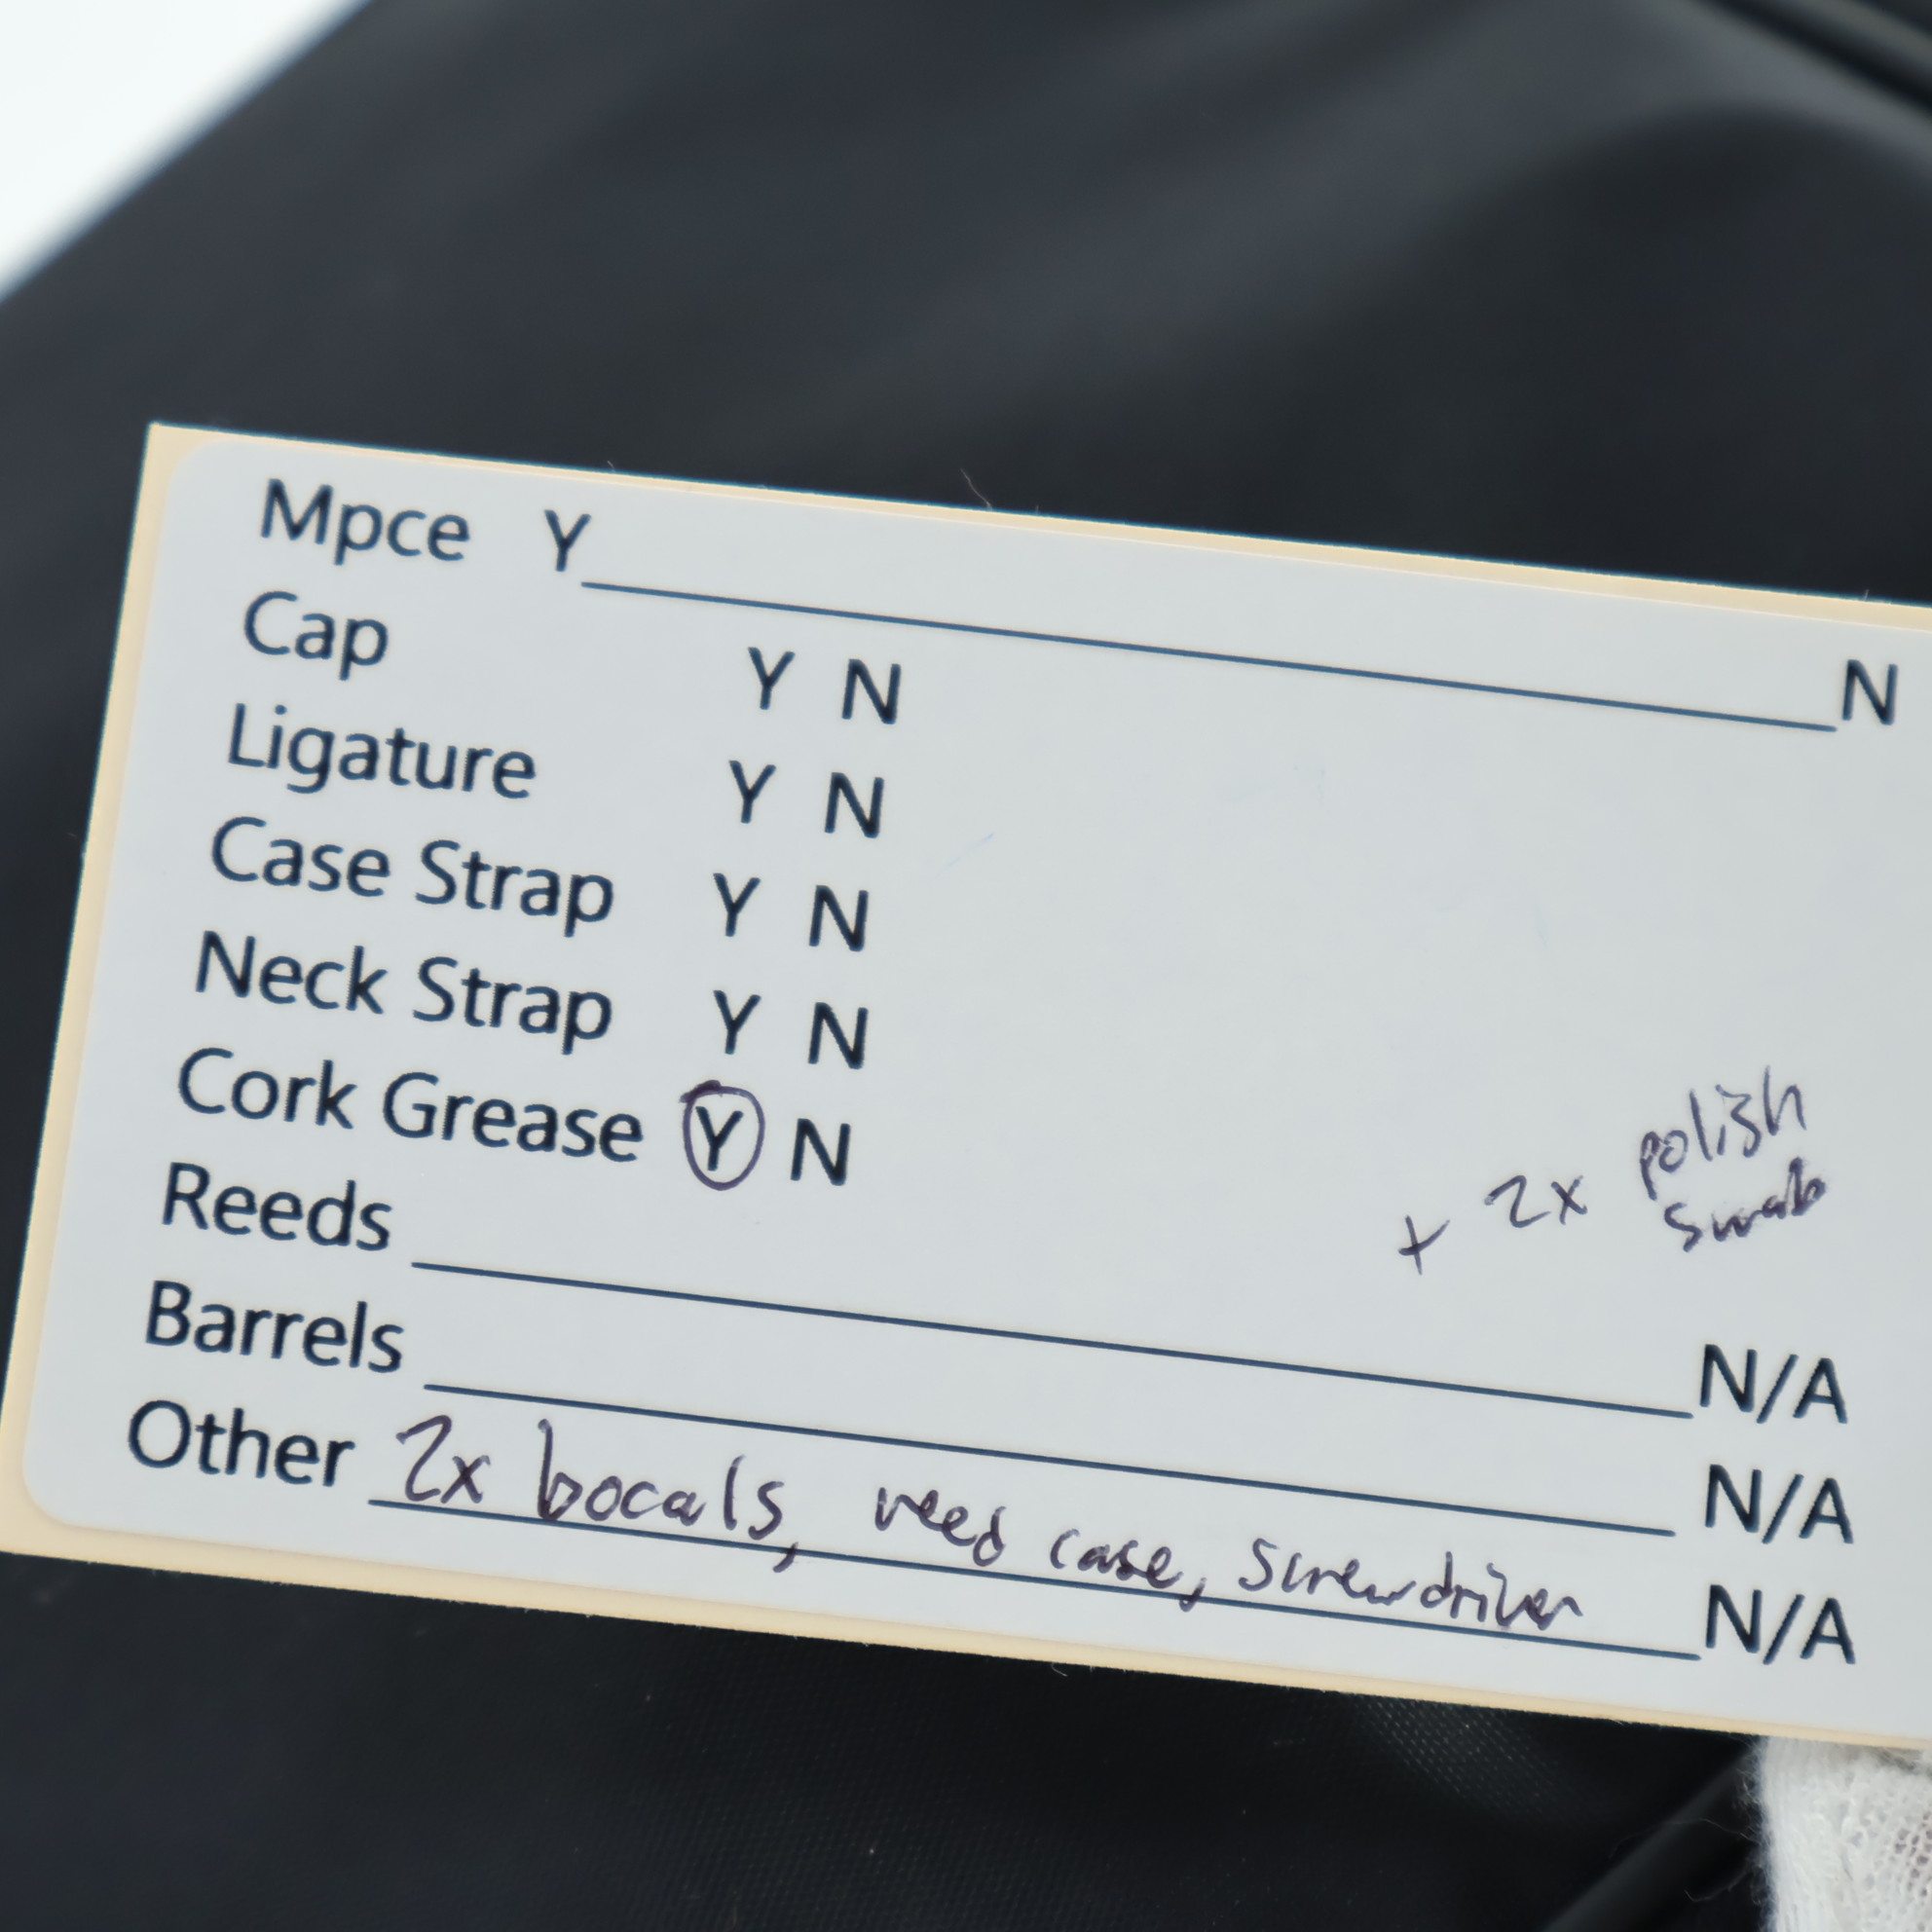 Mpce Y____N
Cap Y N
Ligature Y N
Case Strap Y N
Neck Strap Y N
Cork Grease Y N
+ 2x polish
swab
Reeds ____N/A
Barrels ____N/A
Other 2x bocals, reed case, screwdriver N/A